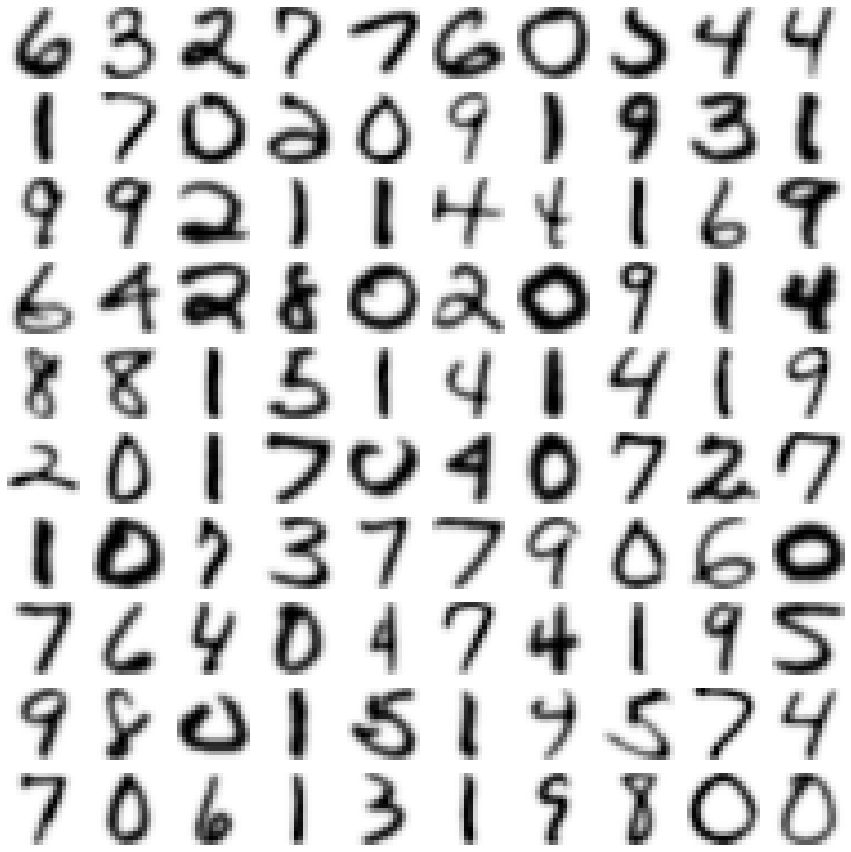 6 3 2 7 7 6 0 5 4 4
1 7 0 2 0 9 1 9 3 1
9 9 2 1 1 4 4 1 6 9
6 4 2 8 0 2 0 9 1 4
8 8 1 5 1 4 1 4 1 9
2 0 1 7 0 4 0 7 2 7
1 0 7 3 7 7 9 0 6 0
7 6 4 0 4 7 4 1 9 5
9 8 0 1 5 1 9 5 7 4
7 0 6 1 3 1 9 8 0 0